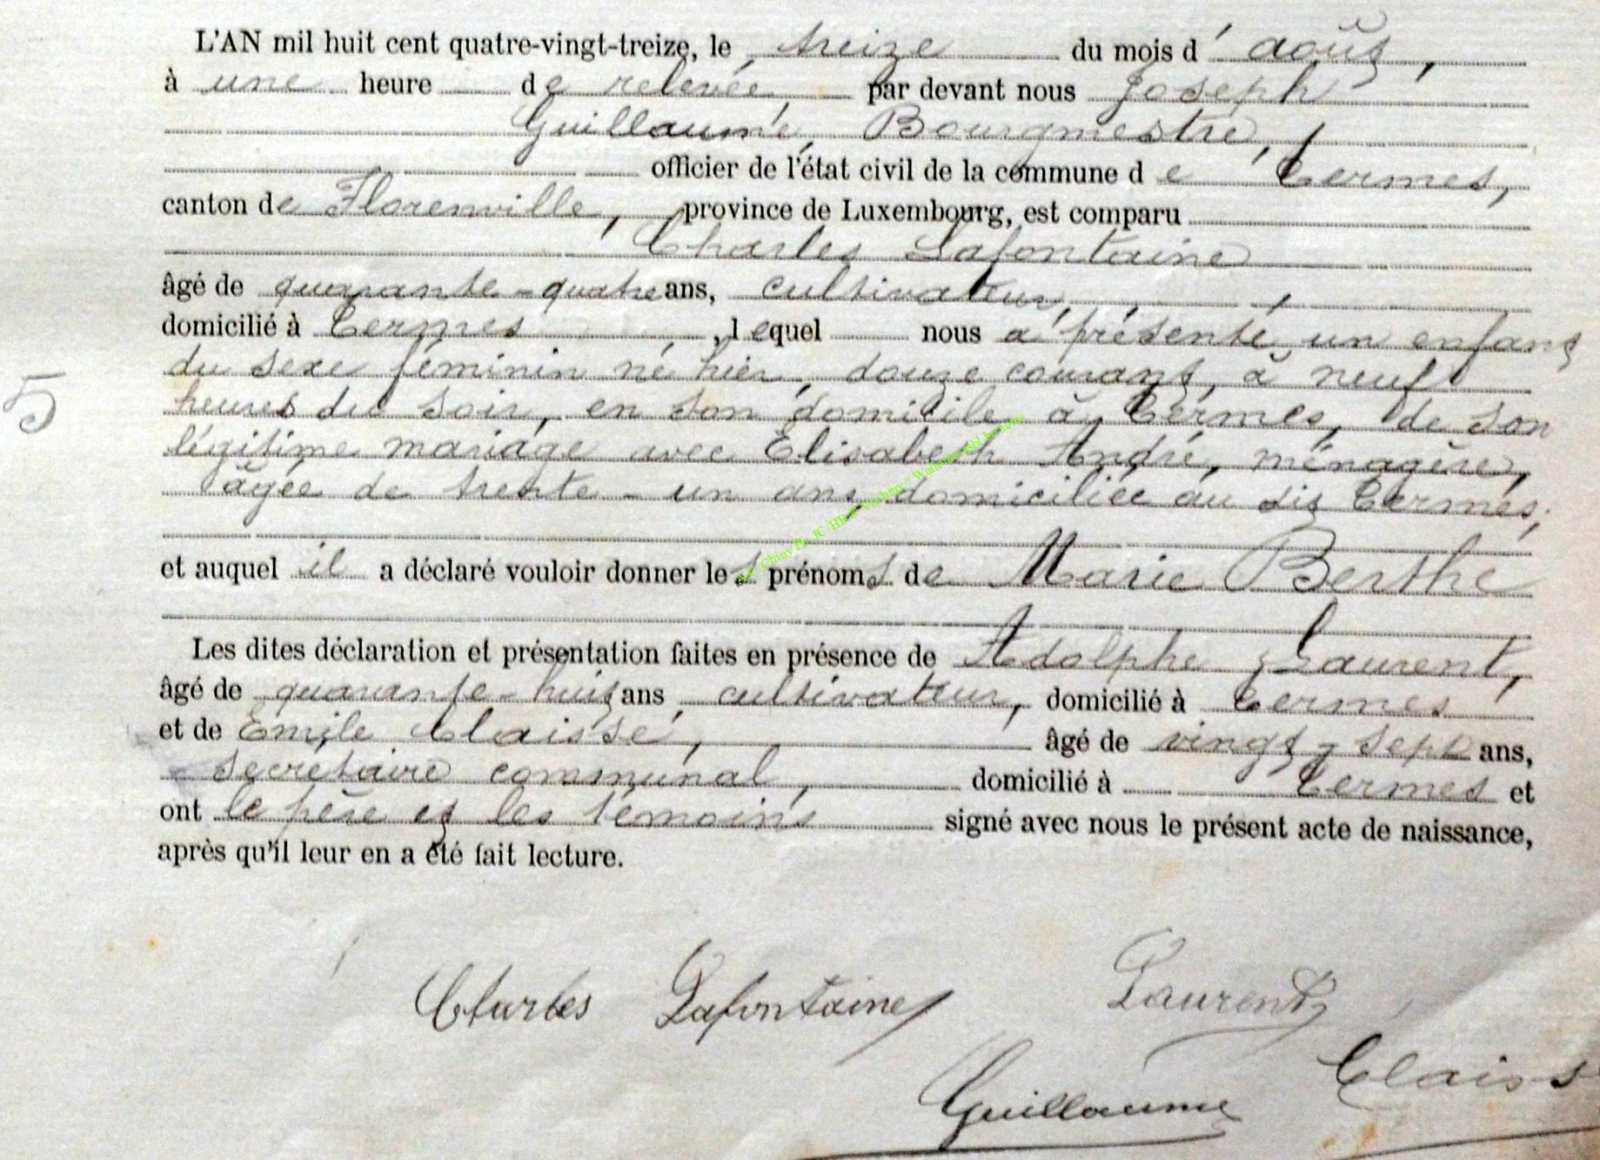 L'AN mil huit cent quatre-vingt-treize, le treize du mois d' août,
à une heure de relevée, par devant nous Joseph
Guillaume, Bourgmestre,
officier de l'état civil de la commune de Termes,
canton de Florenville, province de Luxembourg, est comparu
Charles Lafontaine
âgé de quarante-quatre ans, cultivateur,
domicilié à Termes, lequel nous a présenté un enfant
du sexe féminin né hier, douze courant, à neuf
heures du soir, en son domicile à Termes, de son
légitime mariage avec Elisabeth André, ménagère,
âgée de trente-un ans, domiciliée au dit Termes,
et auquel il a déclaré vouloir donner les prénoms de Marie Berthe
Les dites déclaration et présentation faites en présence de Adolphe Laurent,
âgé de quarante-huit ans, cultivateur, domicilié à Termes
et de Emile Claisse, âgé de vingt-sept ans,
secrétaire communal, domicilié à Termes et
ont le père et les témoins signé avec nous le présent acte de naissance,
après qu'il leur en a été fait lecture.
5
Charles Lafontaine Laurent
Guillaume Claiss